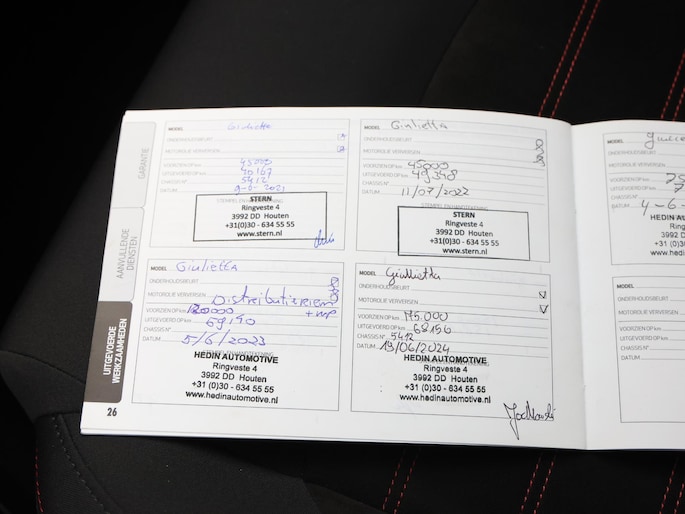 GARANTIE
AANVULLENDE
DIENSTEN
UITGEVOERDE
WERKZAAMHEDEN
26
MODEL Giulietta
ONDERHOUDSBEURT
MOTOROLIE VERVERSEN
VOORZIEN OP km 45000
UITGEVOERD OP km 40167
CHASSIS N° 5412
DATUM 9-6-2021
STERN
Ringveste 4
3992 DD Houten
+31(0)30 - 634 55 55
www.stern.nl
MODEL Giulietta
ONDERHOUDSBEURT
MOTOROLIE VERVERSEN
VOORZIEN OP km 45000
UITGEVOERD OP km 49348
CHASSIS N°
DATUM 11/07/2022
STEMPEL EN HANDTEKENING
STERN
Ringveste 4
3992 DD Houten
+31(0)30 - 634 55 55
www.stern.nl
MODEL Giulietta
ONDERHOUDSBEURT
MOTOROLIE VERVERSEN Distributieriem
VOORZIEN OP km 120000 + WP
UITGEVOERD OP km 59140
CHASSIS N°
DATUM 5/6/2023
HEDIN AUTOMOTIVE
Ringveste 4
3992 DD Houten
+31 (0)30 - 634 55 55
www.hedinautomotive.nl
MODEL Giulietta
ONDERHOUDSBEURT
MOTOROLIE VERVERSEN
VOORZIEN OP km 175.000
UITGEVOERD OP km 68156
CHASSIS N° 5412
DATUM 19/06/2024
HEDIN AUTOMOTIVE
Ringveste 4
3992 DD Houten
+31 (0)30 - 634 55 55
www.hedinautomotive.nl
MODEL
ONDERHOUDSBEURT
MOTOROLIE VERVERSEN
VOORZIEN OP km
UITGEVOERD OP km
CHASSIS N°
DATUM 4-6-
HEDIN AU
Ring
3992 D
+31 (0)30
www.hedin
MODEL
ONDERHOUDSBEURT
MOTOROLIE VERVERSEN
VOORZIEN OP km
UITGEVOERD OP km
CHASSIS N°
DATUM